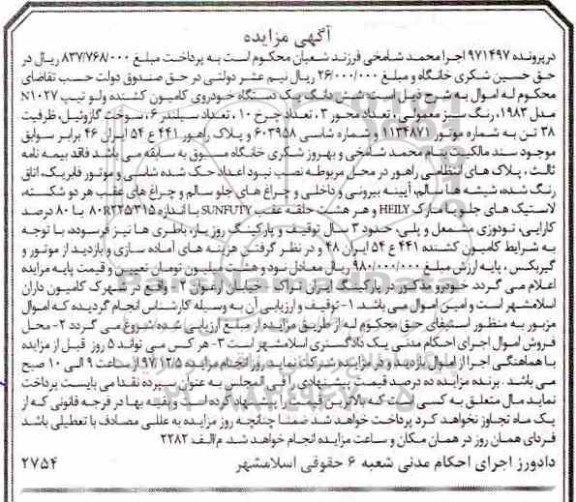 آگهی مزایده
درپرونده ۹۷۱۴۹۷ اجرا محمد شامخی فرزند شعبان محکوم است به پرداخت مبلغ ۸۳۷/۷۶۸/۰۰۰ ریال در
حق حسین شکری خانگاه و مبلغ ۲۶/۰۰۰/۰۰۰ ریال نیم عشر دولتی در حق صندوق دولت حسب تقاضای
محکوم له اموال به شرح ذیل است: شش دانگ یک دستگاه خودروی کامیون کشنده ولو تیپ N۱۰۲۷
مدل ۱۹۸۳، رنگ سبز معمولی، تعداد محور ۳، تعداد چرخ ۱۰، تعداد سیلندر ۶، سوخت گازوئیل، ظرفیت
۳۸ تن به شماره موتور ۱۱۳۴۸۷۱ و شماره شاسی ۶۰۳۹۵۸ و پلاک راهور ۴۴۱ ع ۵۴ ایران ۴۶ برابر سوابق
موجود سند مالکیت بنام محمد شامخی و بهروز شکری خانگاه مسبوق به سابقه می باشد فاقد بیمه نامه
ثالث، پلاک های انتظامی راهور در محل مربوطه نصب نبود اعداد حک شده شاسی و موتور فابریک، اتاق
رنگ شده، شیشه ها سالم، آیینه بیرونی و داخلی و چراغ های جلو سالم و چراغ های عقب هر دو شکسته،
لاستیک های جلو با مارک HEILY و هر هشت حلقه عقب SUNFUTY با اندازه ۸۰R۲۲۵۳۱۵ با ۸۰ درصد
کارایی، تودوزی مشمعل و پلی، حدود ۳ سال توقیف و پارکینگ روز باز، باطری ها نیز فرسوده، با توجه
به شرایط کامیون کشنده ۴۴۱ ع ۵۴ ایران ۴۸ و در نظر گرفتن هزینه های آماده سازی و بازدید از موتور و
گیربکس، پایه ارزش مبلغ ۹۸۰/۰۰۰/۰۰۰ ریال معادل نود و هشت میلیون تومان تعیین و قیمت پایه مزایده
اعلام می گردد خودرو مذکور در پارکینگ ایران تراک - خیابان ارغوان ۲- واقع در شهرک کامیون داران
اسلامشهر است و امین اموال می باشد ۱- توقیف و ارزیابی آن به وسیله کارشناس انجام گردیده که اموال
مزبور به منظور استیفای حق محکوم له از طریق مزایده از مبلغ ارزیابی شده شروع می گردد ۲- محل
فروش اموال اجرای احکام مدنی یک دادگستری اسلامشهر است ۳- هر کس می تواند ۵ روز قبل از مزایده
با هماهنگی اجرا از اموال بازدید و در مزایده شرکت نماید روز انجام مزایده ۹۷/۱۲/۵ از ساعت ۹ الی ۱۰ صبح
می باشد. برنده مزایده ده درصد قیمت پیشنهادی را فی المجلس به عنوان سپرده نقدا می بایست پرداخت
نماید مال متعلق به کسی است که بالاترین مبلغ را پیشنهاد کرده است و بقیه بها در فرجه قانونی که از
یک ماه تجاوز نخواهد کرد پرداخت خواهد شد ضمنا چنانچه روز مزایده به عللی مصادف با تعطیلی باشد
فردای همان روز در همان مکان و ساعت مزایده انجام خواهد شد. م الف ۲۲۸۲
دادورز اجرای احکام مدنی شعبه ۶ حقوقی اسلامشهر ۲۷۵۴